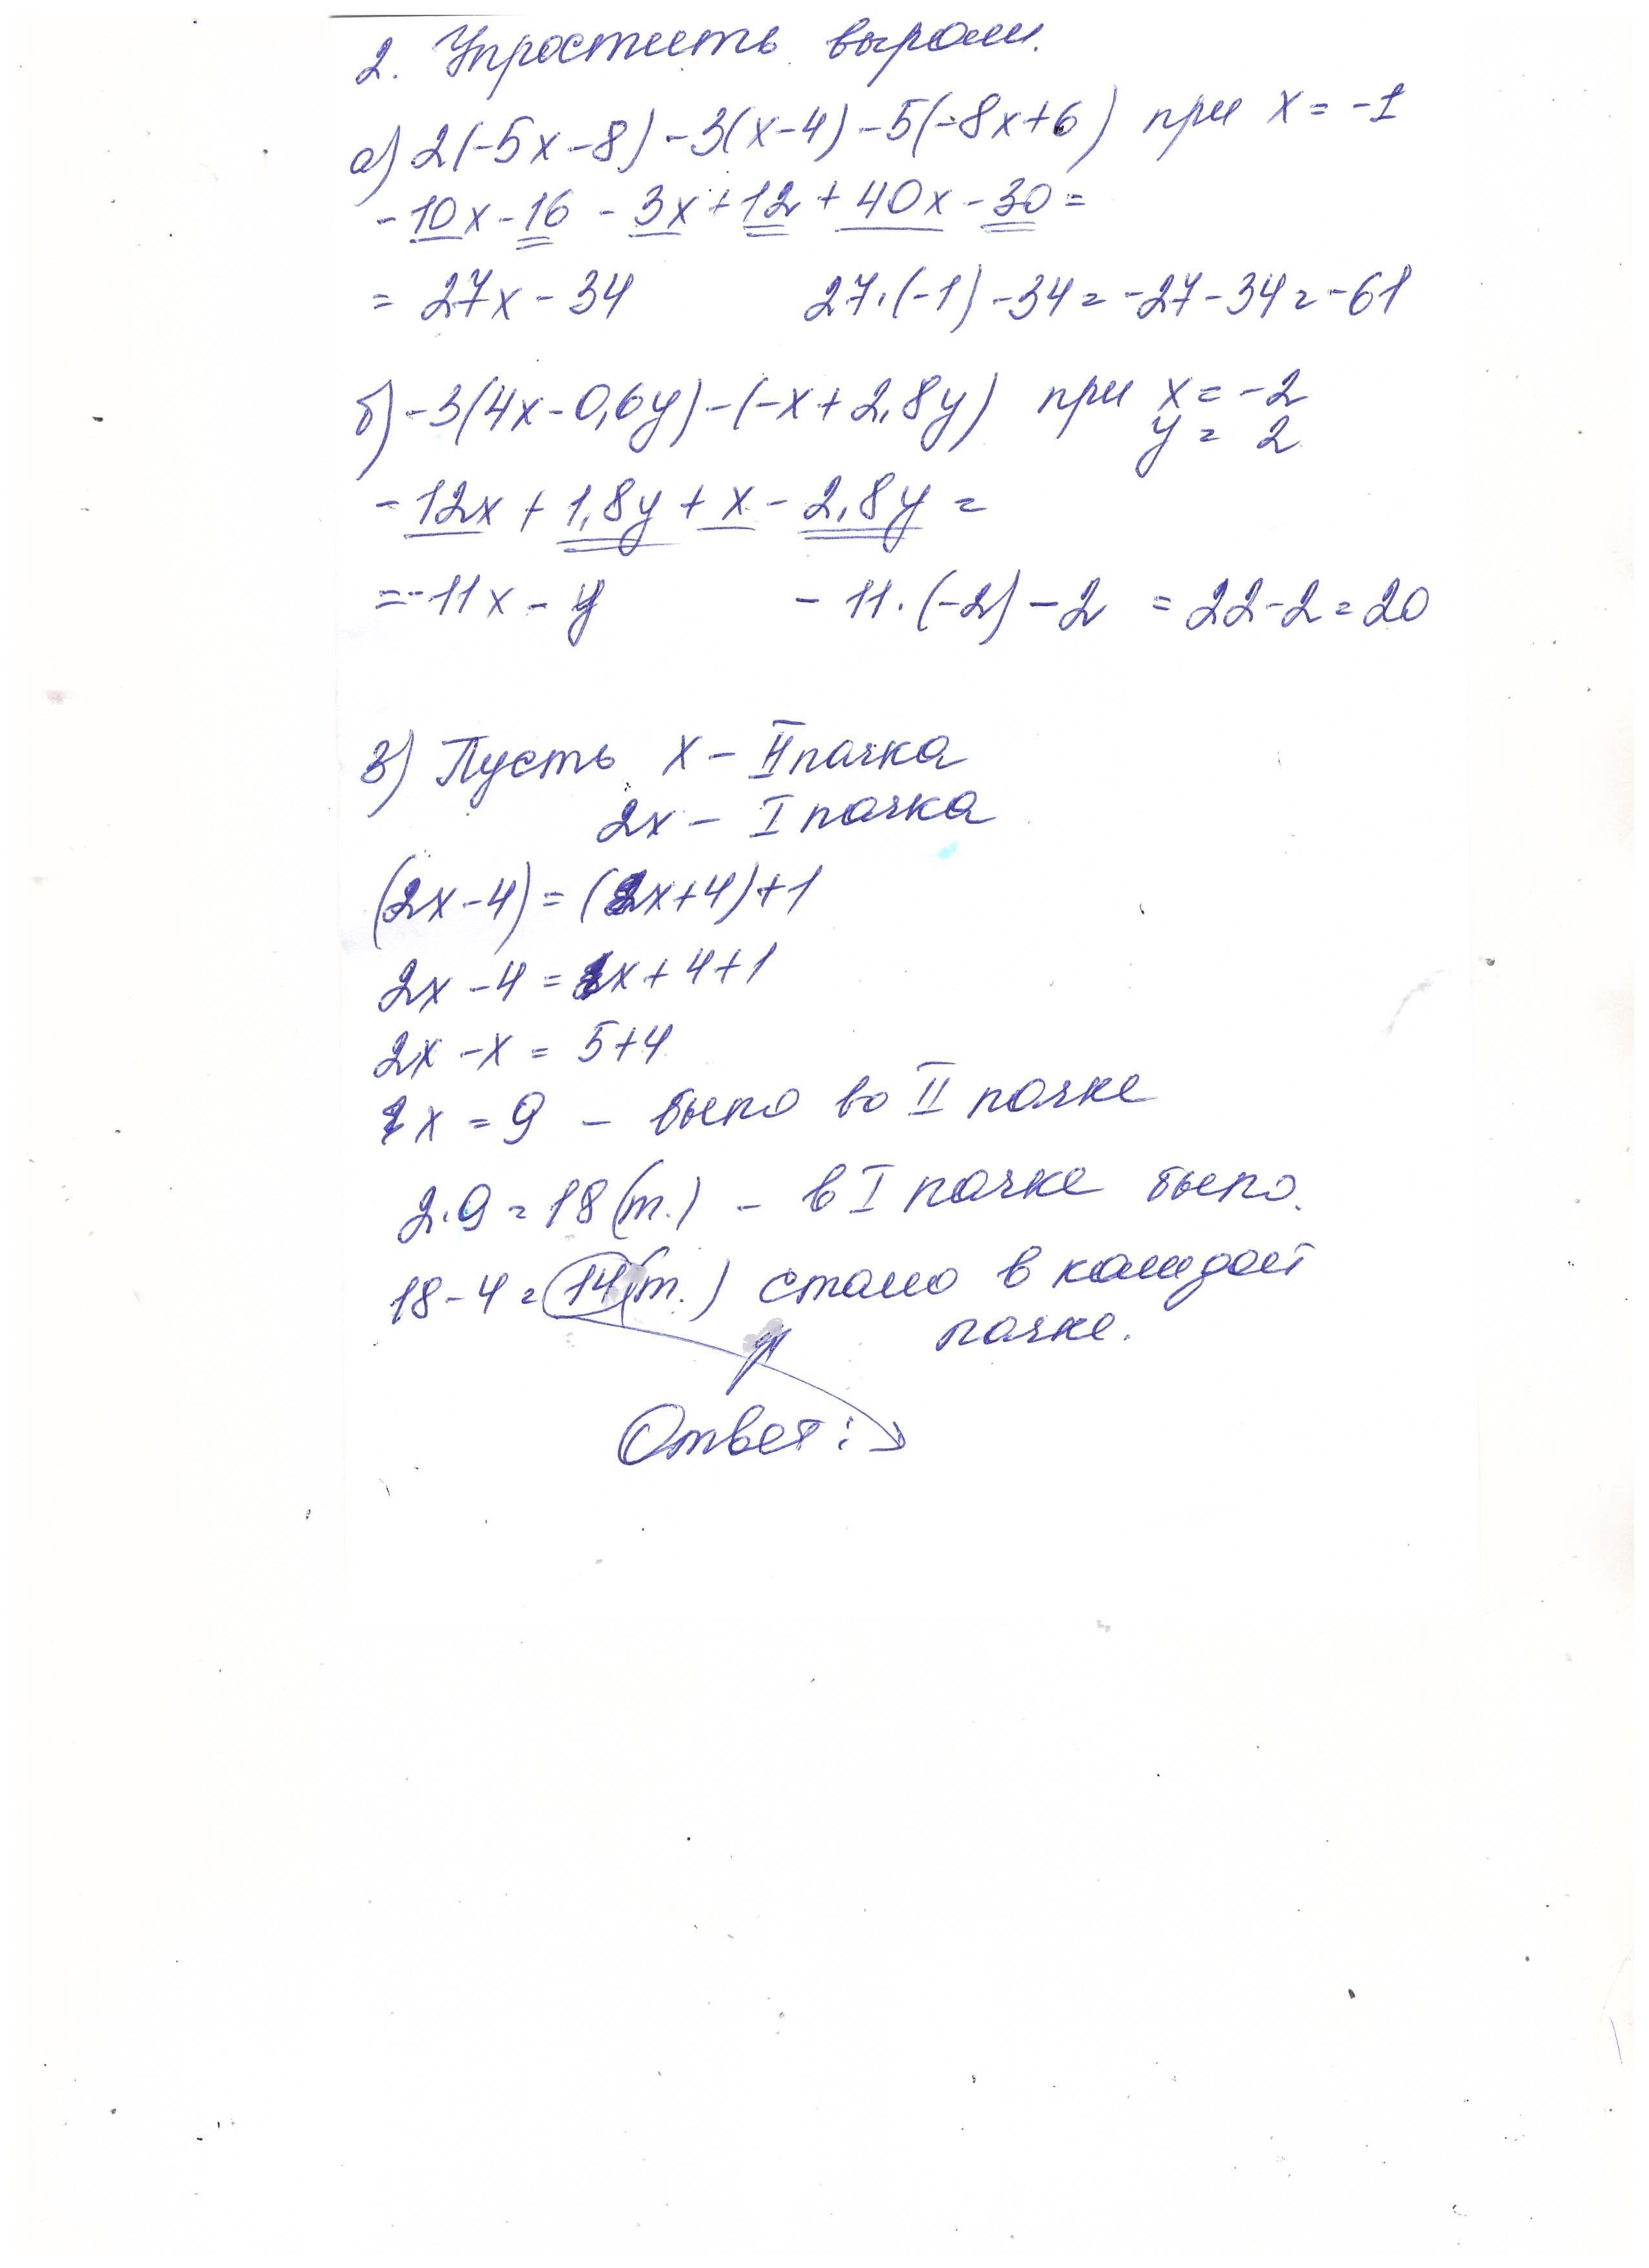 2. Упростить выраж.
а) 2(-5x-8)-3(x-4)-5(-8x+6) при x = -1
-10x-16-3x+12+40x-30=
= 27x-34 27·(-1)-34=-27-34=-61
б) -3(4x-0,6y)-(-x+2,8y) при x = -2
y = 2
-12x+1,8y+x-2,8y=
=-11x-y -11·(-2)-2 = 22-2=20
3) Пусть x - II пачка
2x - I пачка
(2x-4)=(x+4)+1
2x-4=x+4+1
2x-x=5+4
x=9 - было во II пачке
2·9=18(т.) - в I пачке было.
18-4=14(т.) стало в каждой
пачке.
Ответ: